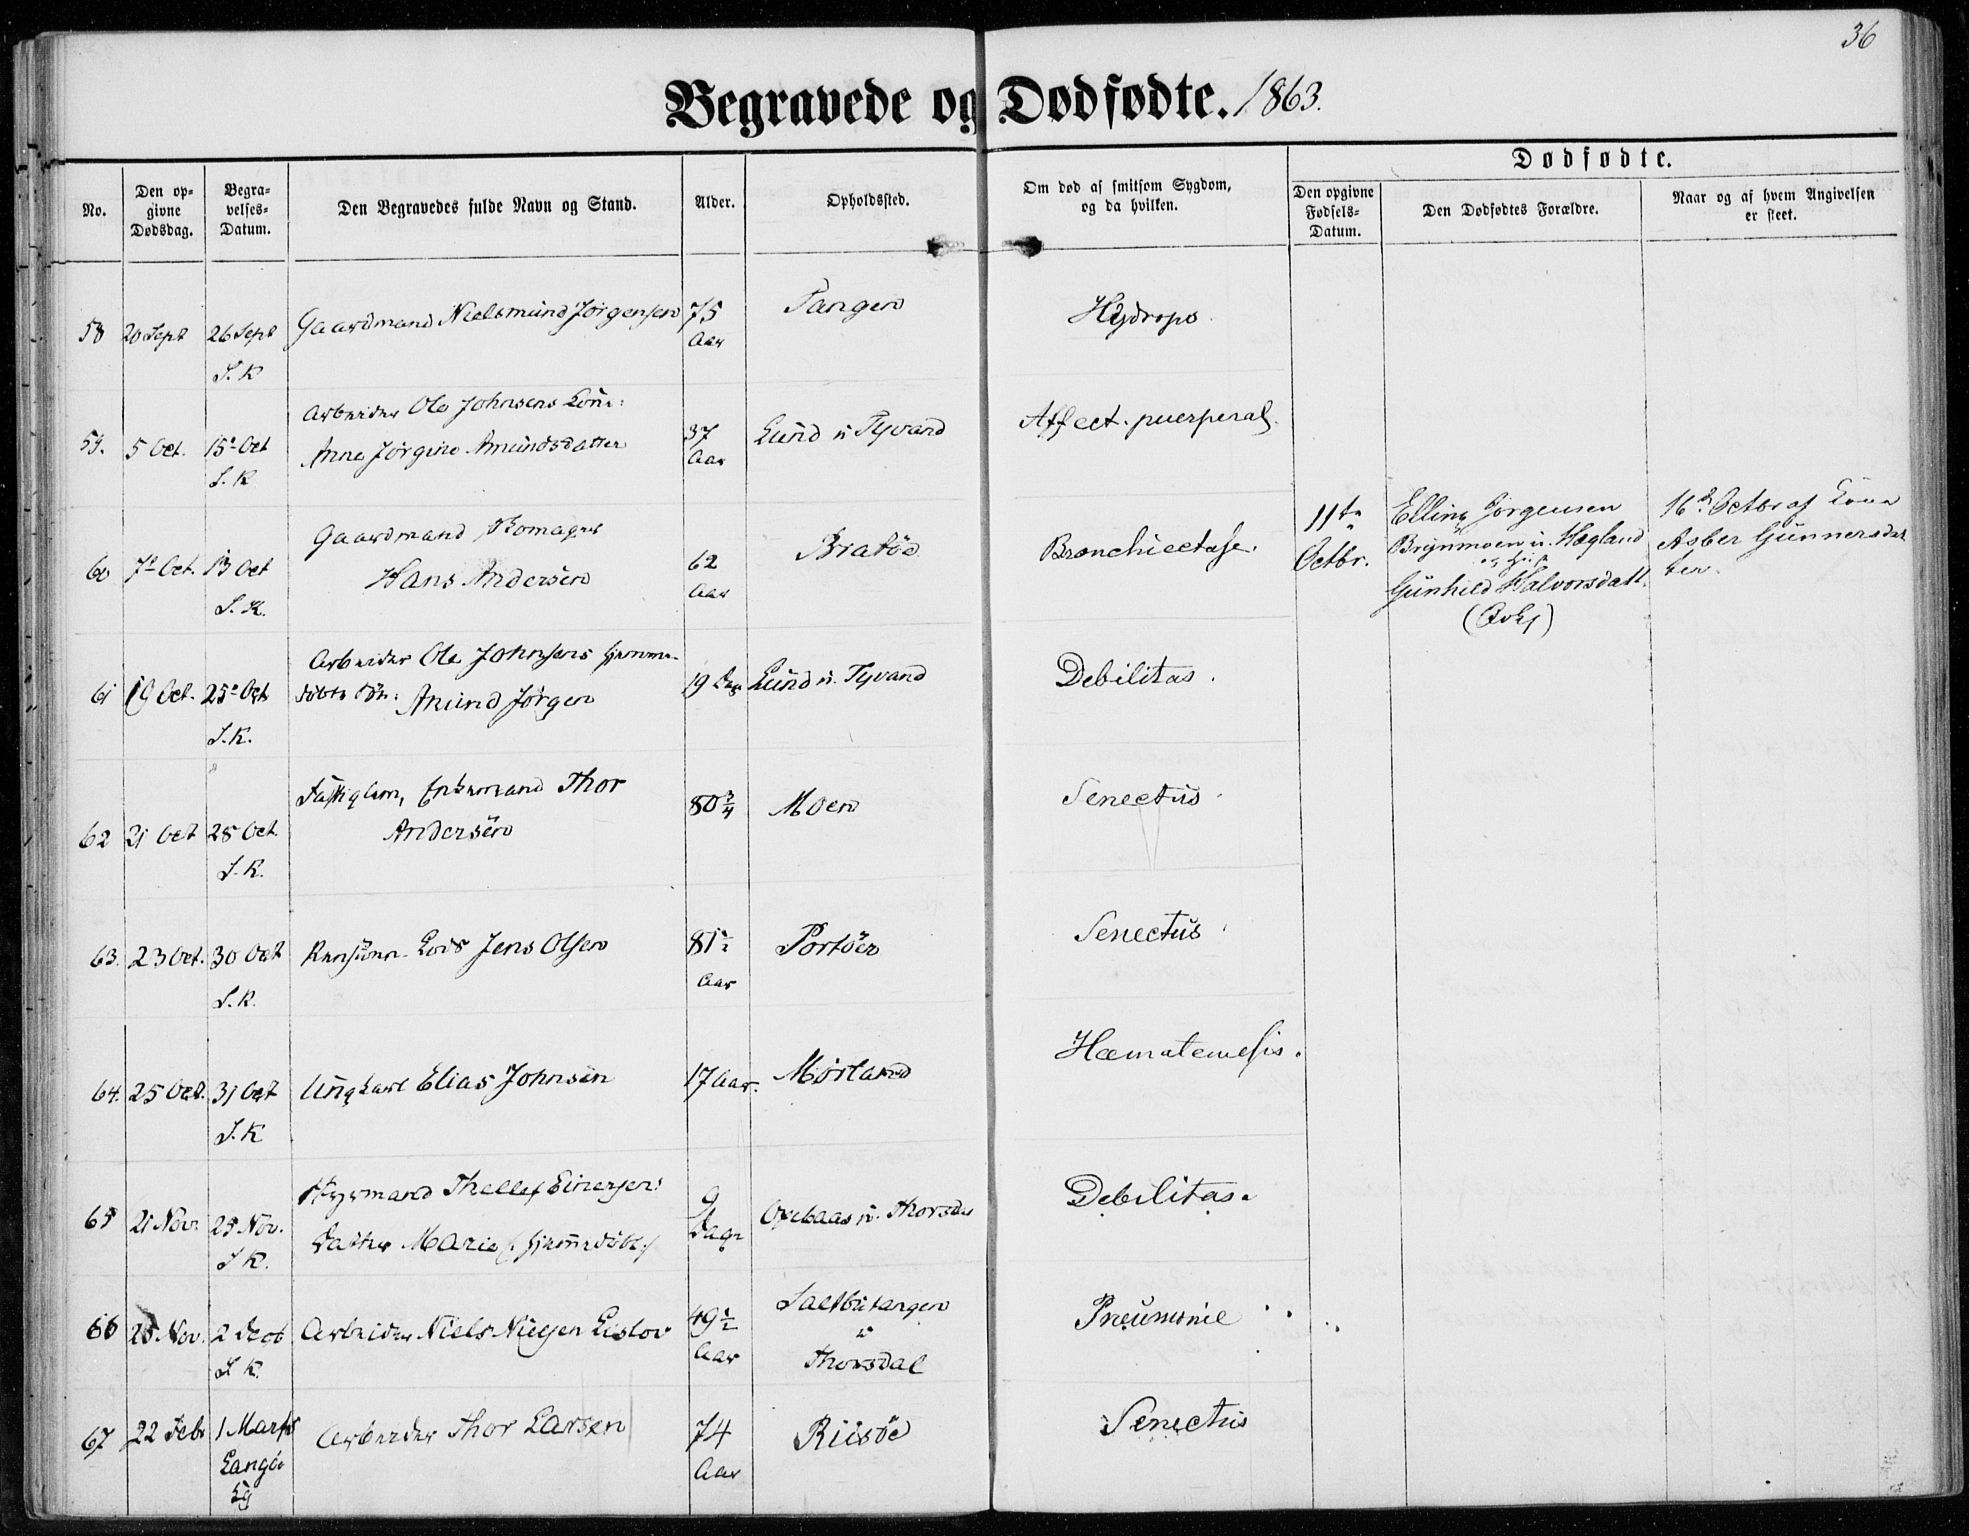 36
Begravede og Dødfødte. 1863.
No.
Den opgivne Dødsdag.
Begravelses-Datum.
Den Begravedes fulde Navn og Stand.
Alder.
Opholdssted.
Om død af smitsom Sygdom, og da hvilken.
Dødfødte.
Den opgivne Fødsels-Datum.
Den Dødfødtes Forældre.
Naar og af hvem Angivelsen er skeet.
58 20 Sept 26 Sept Gaardmand Nielsmund Jørgensen 75 Tangen Hydrops
S.K Aar
Arbeider Ole Johnsens Kone:
59. 5 Oct. 15 Oct Anne Jørgine Amundsdatter 37 Aar Lund u Tyvand Affect. puerperal.
S.K
Gaardmand
60 7 Oct. 13 Oct Hans Andersen 62 Aar Bratøe Bronchiectase.
S.K.
11te Octbr.
Elling Jørgensen
Brynmoen u. Hægland
og
Gunhild Halvorsdatt.
16d Octbr af Kone
Asber Gunnersdat
ter.
Arbeider Ole Johnsens hjemme-
61 19 Oct. 25 Oct døbte Søn: Amund Jørgen 19 Lund u. Tyvand Debilitas.
S.K.
Enkemand Thor
62 21 Oct 28 Oct Andersen 80 3/4 Moen Senectus
S.K.
63. 23 Oct. 30 Oct Lods Jens Olsen 81 1/2 Aar Portøer Senectus
S.K.
64. 25 Oct. 31 Oct Ungkarl Elias Johnsen 17 Aar. Mørland Hæmatemesis.
S.K
Styrmand Thellef Einersens
65 21 Nov. 25 Nov. Datter Marie (hjemmedøbt) 9 Dage Oxebaas u. Thorsdal Debilitas.
S K.
66 25 Nov. 2 Decb Arbeider Niels Nielsen Lislov 49 1/2 Aar Saltbutangen
u
Thorsdal
Pneumonie
S K.
67 22 Feb 1 Marts Arbeider Thor Larsen 74 Aar Riisøe Senectus
Langø
Kg